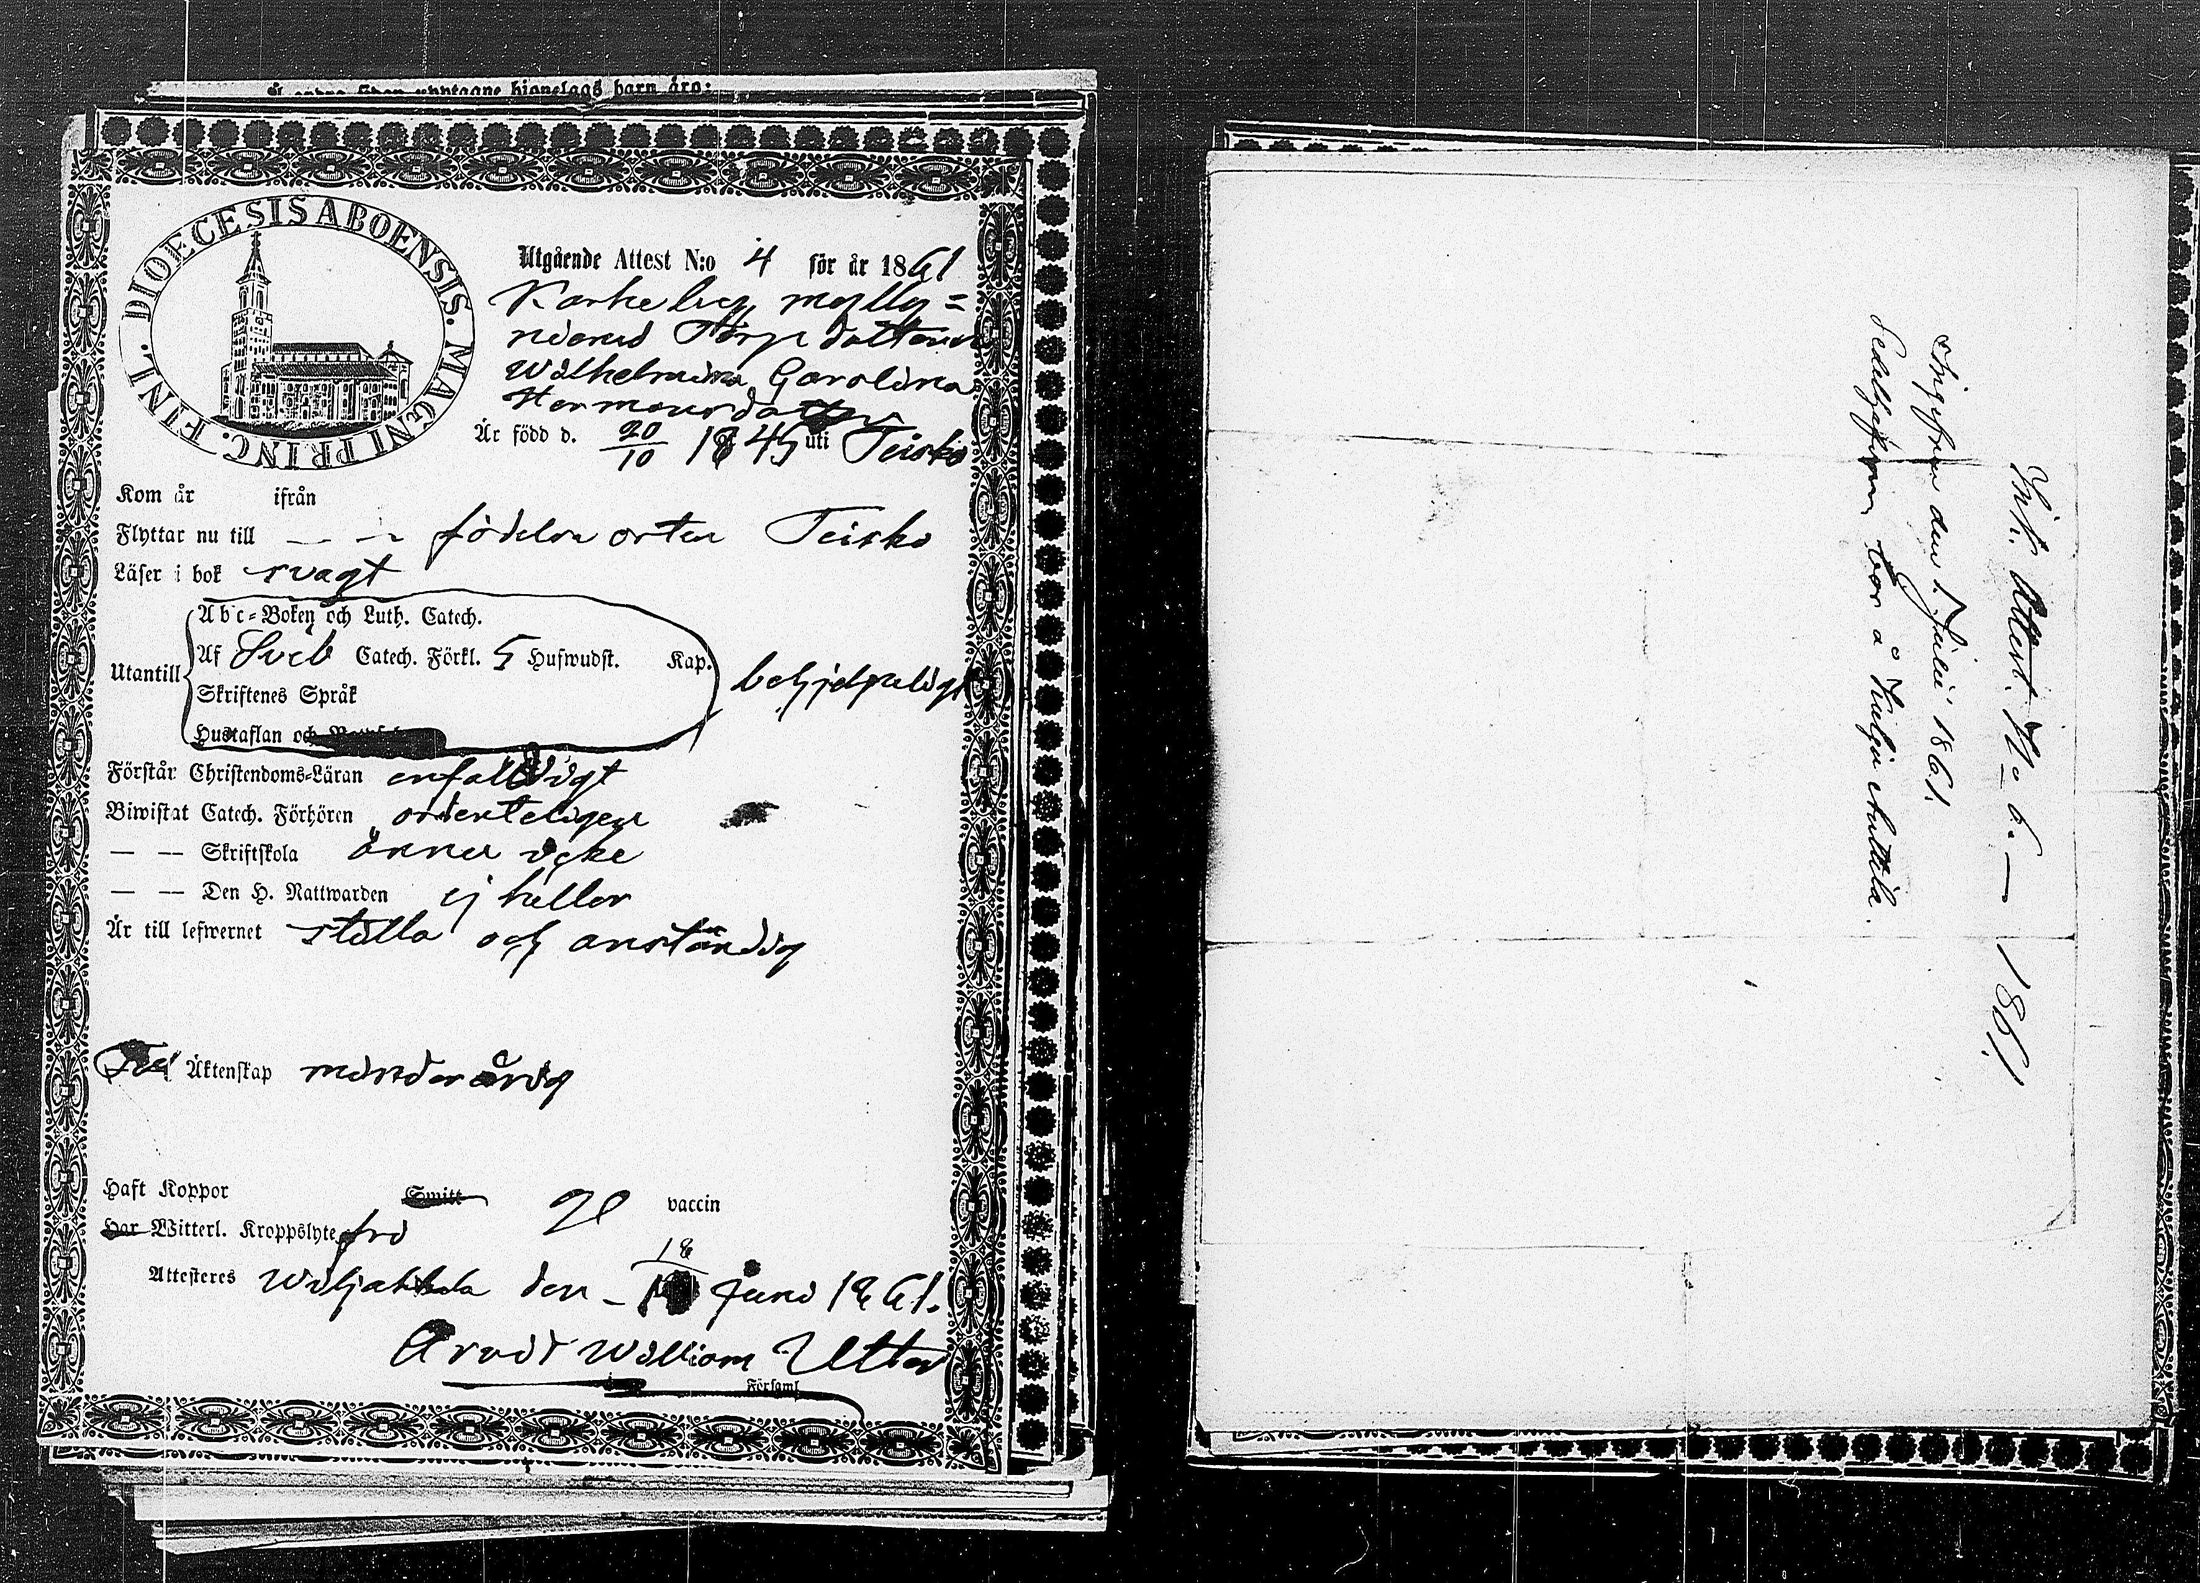 Å andra sidan upptagne hionelags barn äro:
DIOECESIS ABOENSIS. MAGNI PRINC. FINL.
Utgående Attest N:o 4 för år 1861
Karkeby mylly=
Torp dotteren
Wilhelmina Carolina
Hermansdotter
Är född d. 20/10 1845 uti Teisko
Kom år ifrån
Flyttar nu till — — födelse orten Teisko
Läser i bok svagt
Abc-Boken och Luth. Catech.
Utantill Af Sveb Catech. Förkl. 5 Hufwudst. Kap. behjelpeligt
Skriftenes Språk
Hustaflan och
Förstår Christendoms-Läran enfalldigt
Biwistat Catech. Förhören ordenteligen
— — Skriftskola ännu icke
— — Den H. Nattwarden ej heller
Är till lefwernet stilla och anständig
Till Äktenskap minderårig
Haft Koppor Smitt vaccin
Har Witterl. Kroppslyte fri
Attesteres Wiljakkala den 18 Juni 1861.
Arvid William Utter
Församl
Ink. Attest. No 6. — 1861
Ingifven den 1. Julii 1861.
Sedelgifven bor å